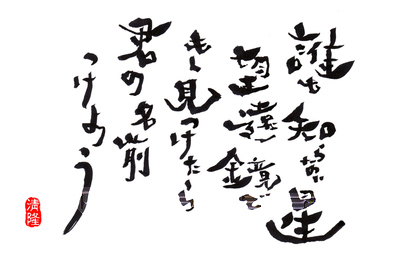 誰も知らない星
望遠鏡で
もし見つけたら
君の名前
つけよう
清隆